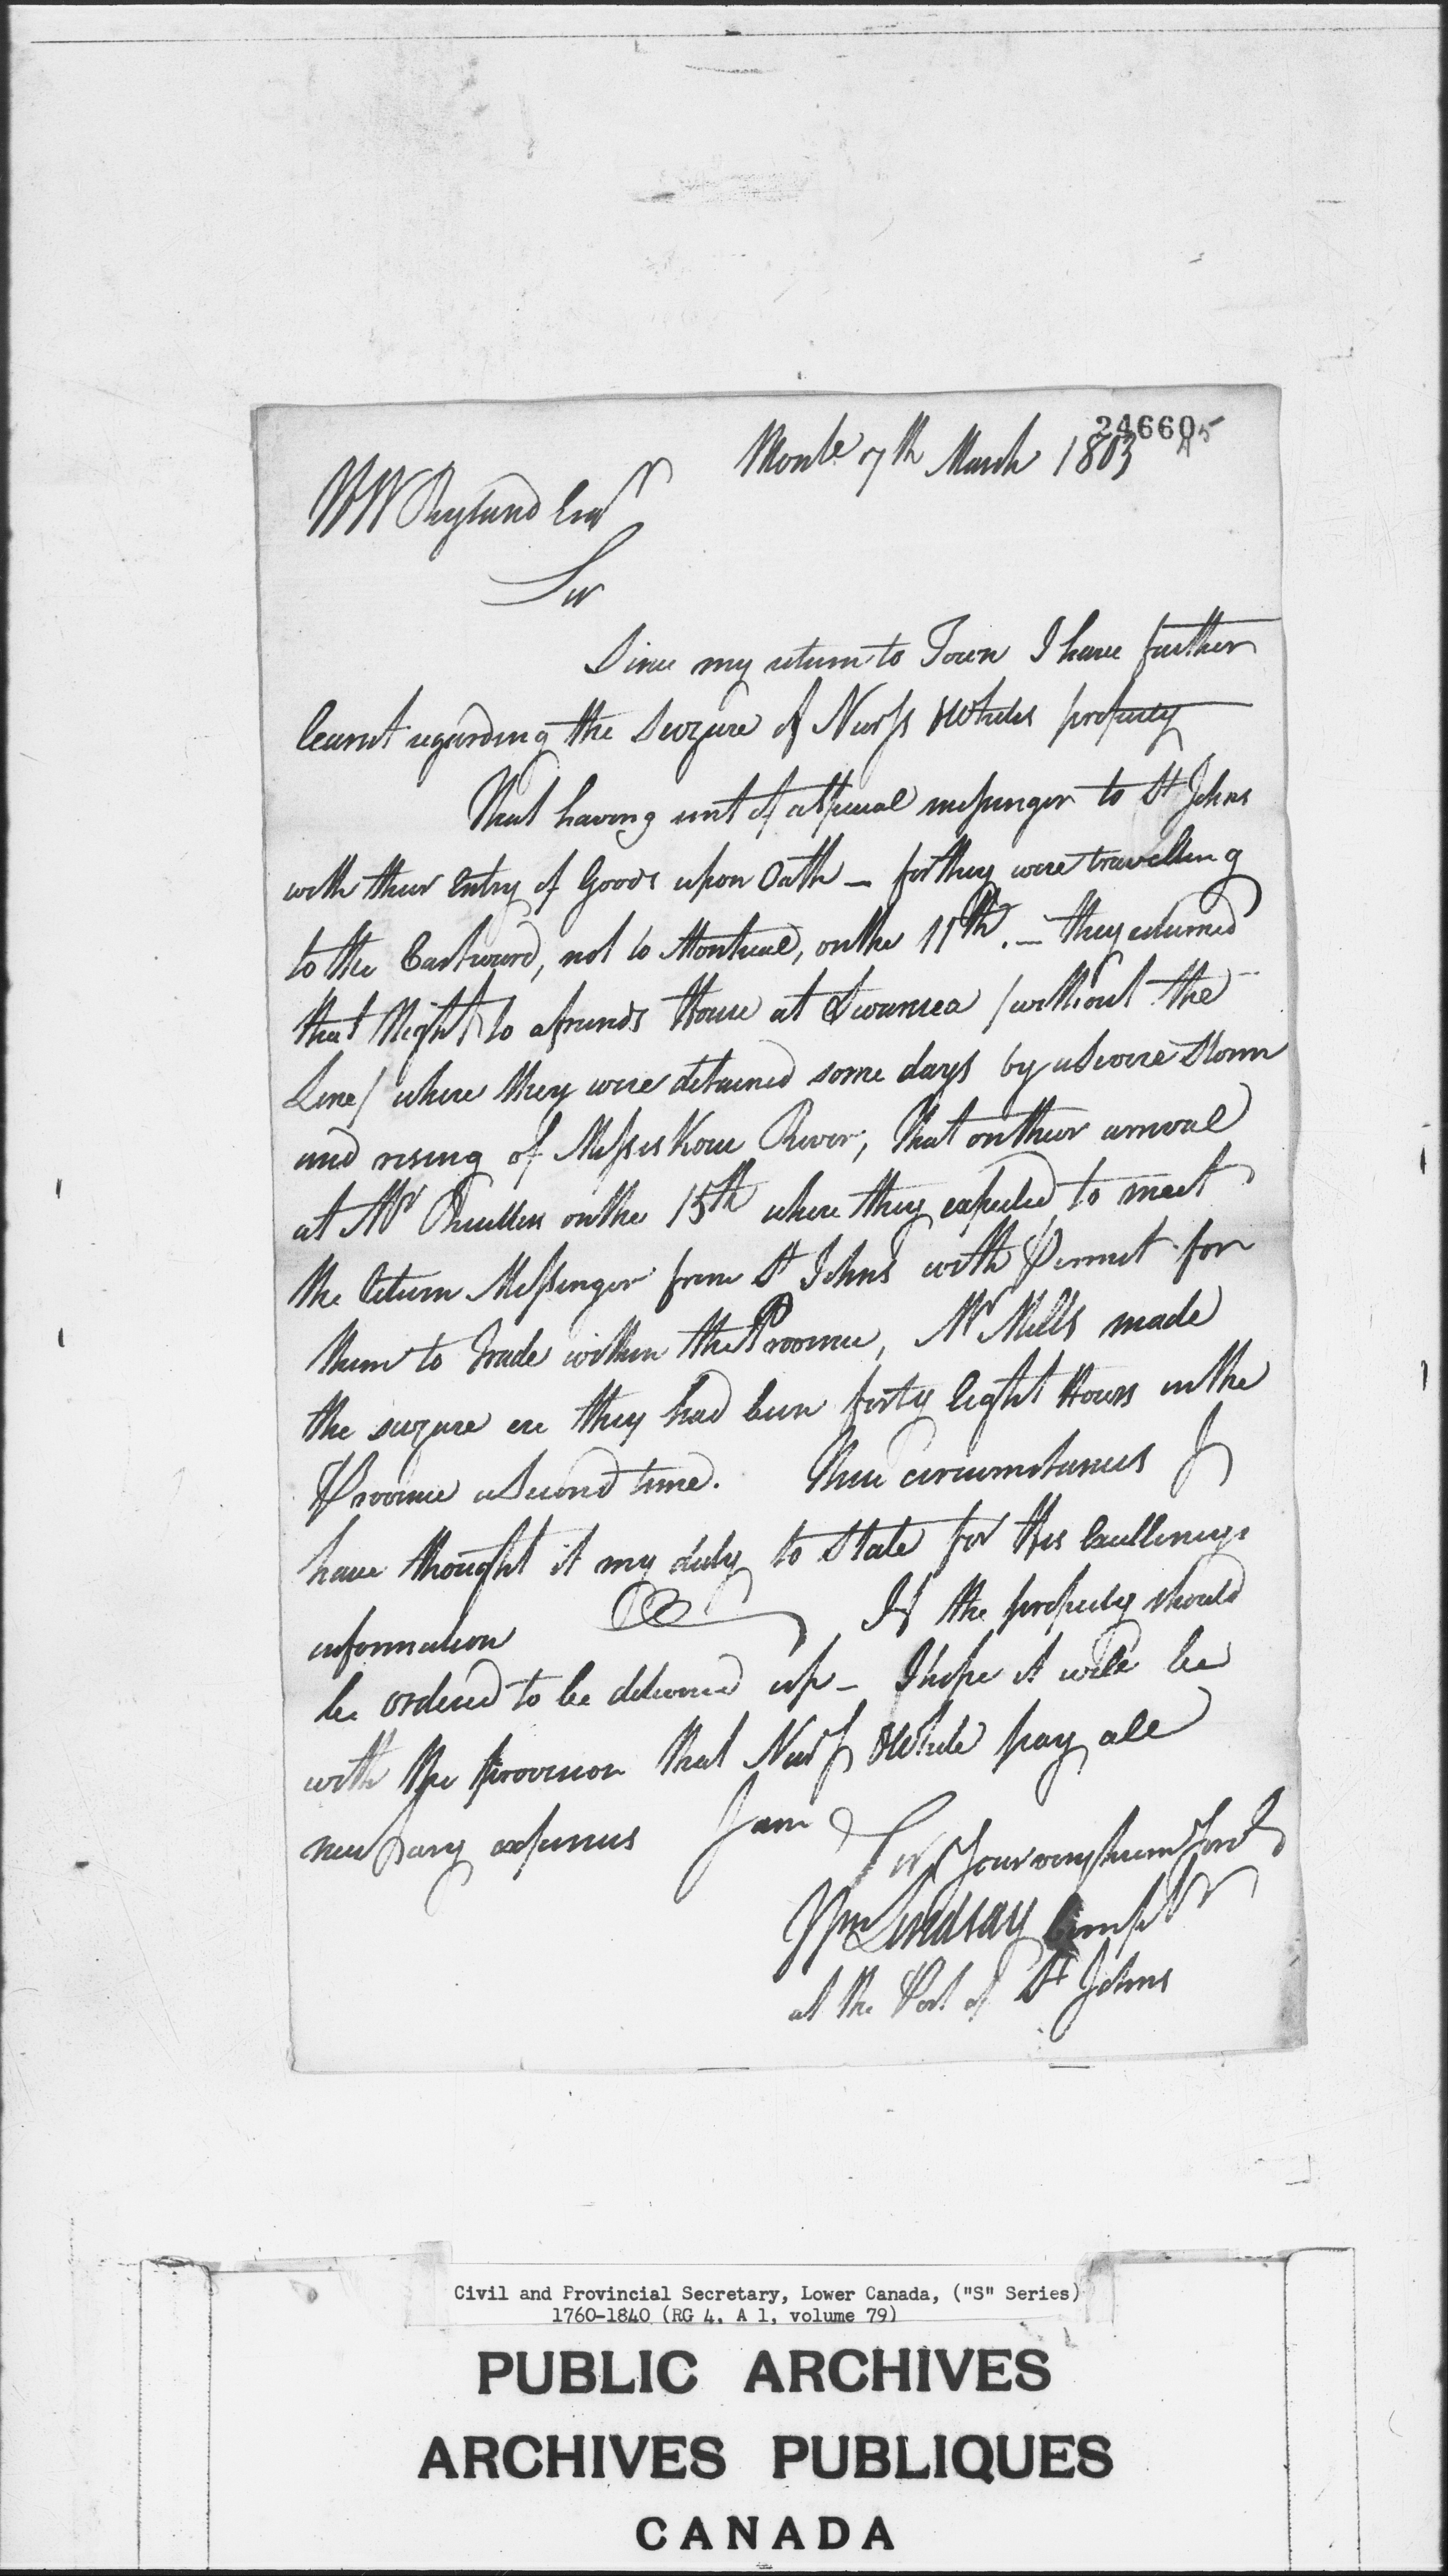 24660
45
Montl 7th March 1803
HW Ryland Esqr
Sir
Since my return to Town I have further
learnt regarding the Seizure of Nurss & Whites property
That having sent off a special messenger to St Johns
with their Entry of Goods upon Oath — for they were travelling
to the Eastward, not to Montreal, on the 11th. — they returned
that Night to a friends House at Swansea /without the
Line/ where they were detained some days by a severe Storm
and rising of Missiskoui River, That on their arrival
at Mr on the 15th where they expected to meet
the return Messenger from St Johns with Permit for
them to trade within the Province, Mr Mills made
the seizure ere they had been forty Eight Hours in the
Province a Second time. These circumstances I
have thought it my duty to State for His Excellencys
information If the property should
be ordered to be delivered up — I hope it will be
with the provision that Nurss & White pay all
necessary expenses I am
Sir Your very hum Servt
Wm Lindsay Compr
at the Port of St Johns
Civil and Provincial Secretary, Lower Canada, ("S" Series)
1760-1840 (RG 4, A 1, volume 79)
PUBLIC ARCHIVES
ARCHIVES PUBLIQUES
CANADA